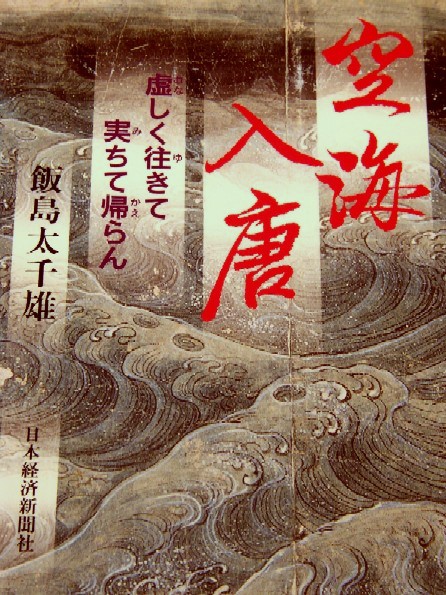 空海
入唐
虚しく往きて
実ちて帰らん
飯島太千雄
日本経済新聞社